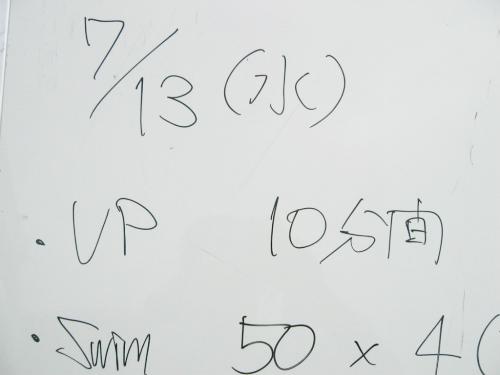 7/13 (水)
・UP 10分間
・Swim 50 × 4 (